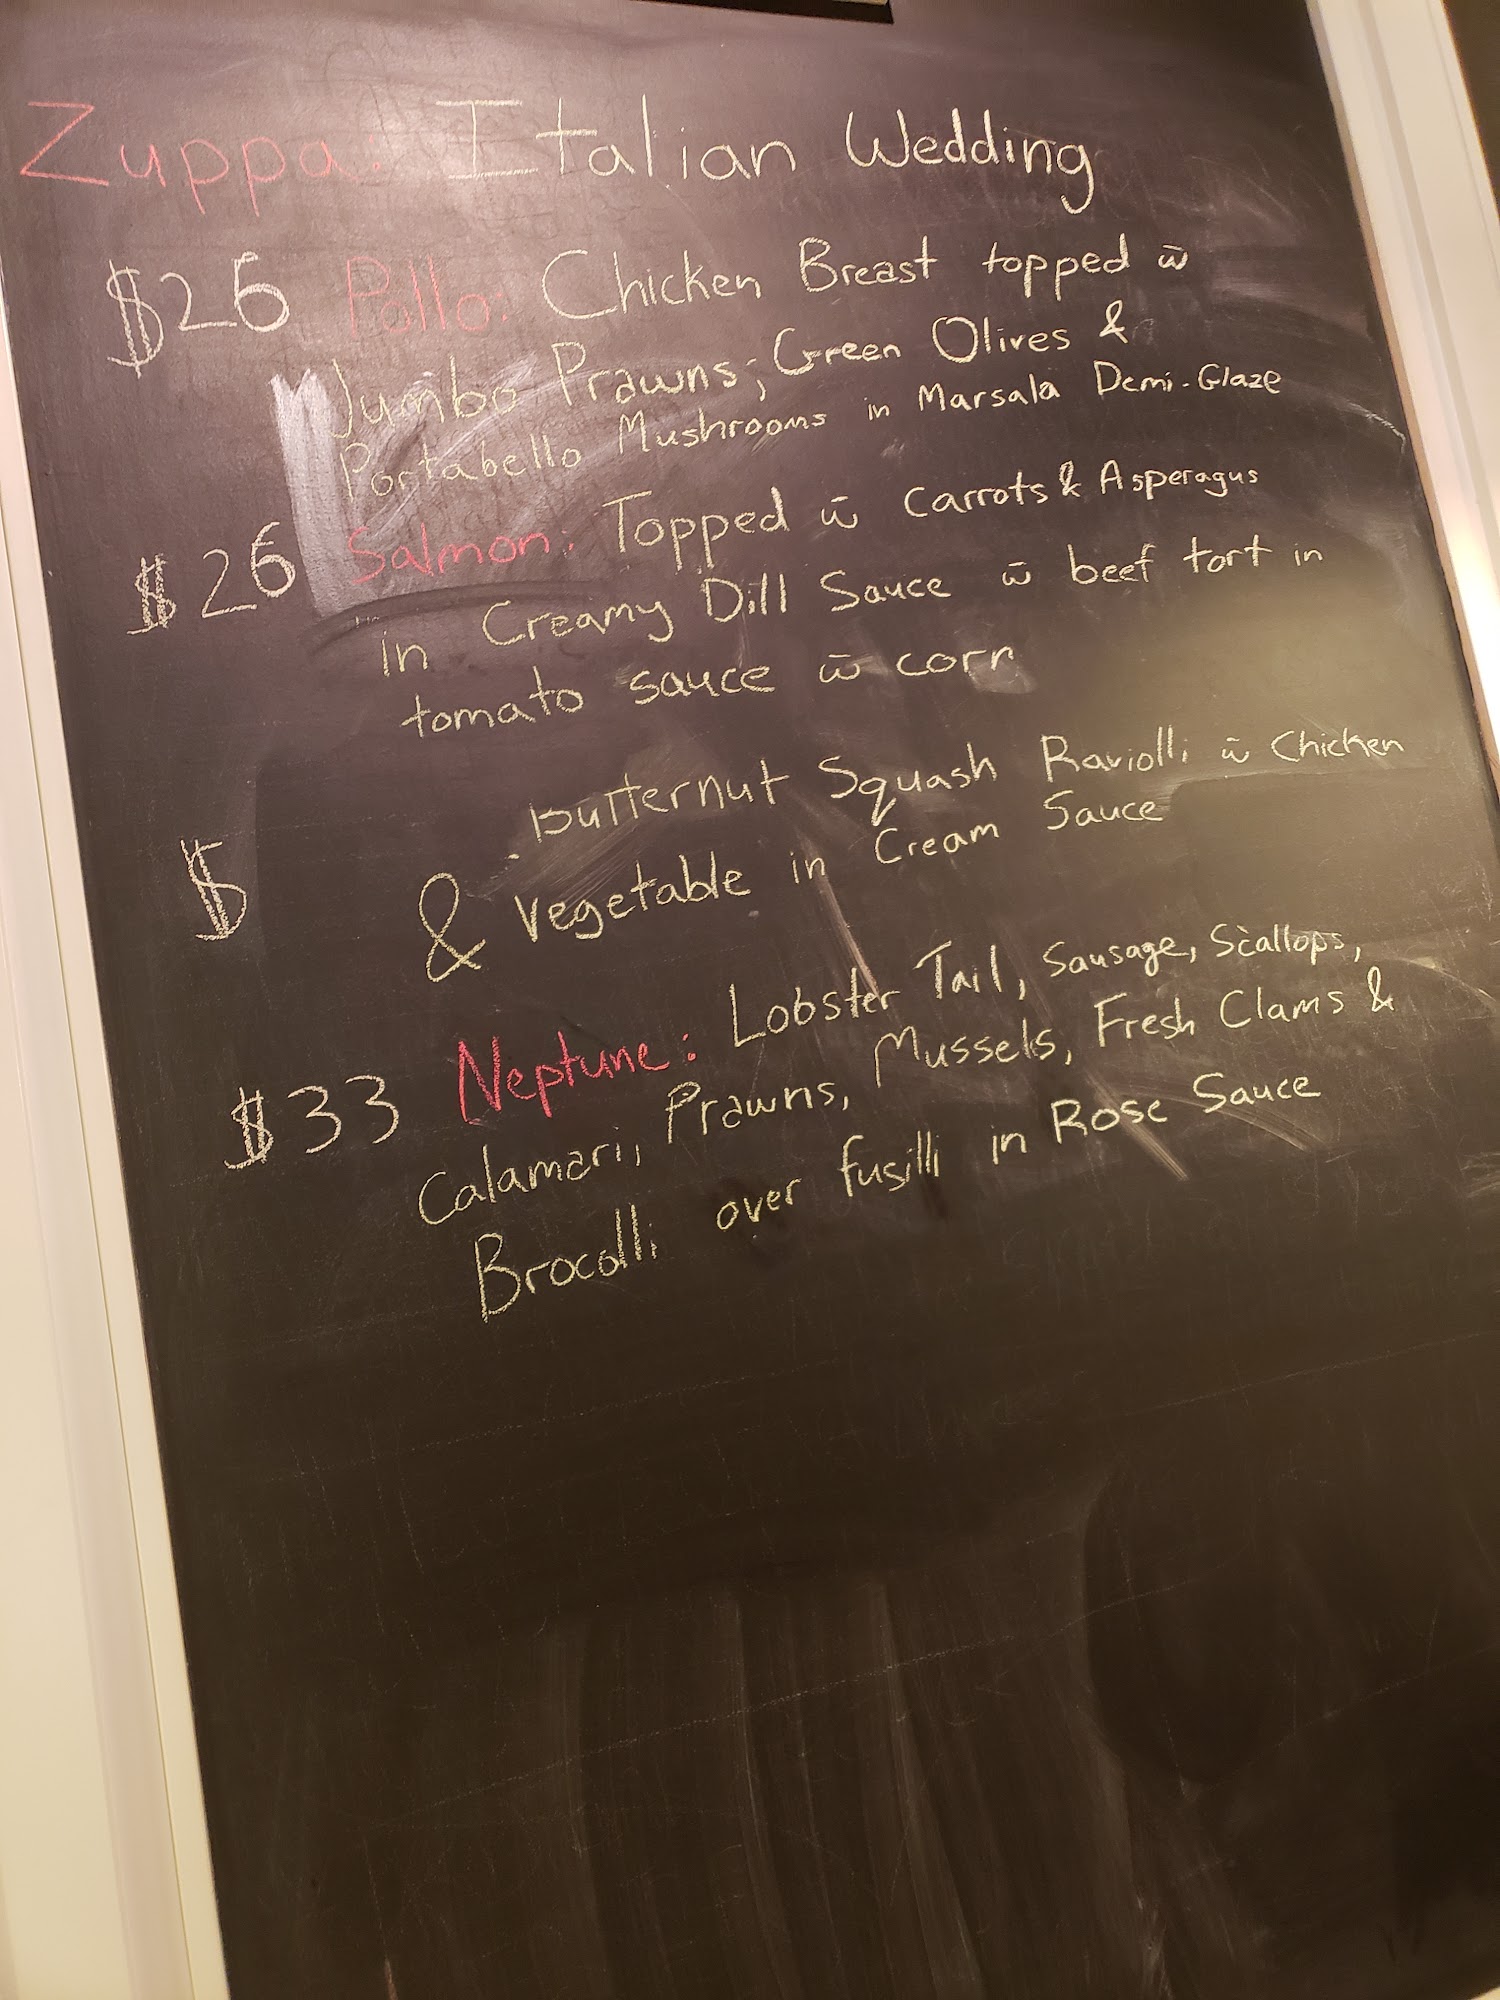 Zuppa: Italian Wedding
$25 Pollo: Chicken Breast topped w̄
Jumbo Prawns, Green Olives &
Portabello Mushrooms in Marsala Demi-Glaze
$26 Salmon: Topped w̄ carrots & Asperagus
in Creamy Dill Sauce w̄ beef tort in
tomato sauce w̄ corn
$ Butternut Squash Raviolli w̄ Chicken
& vegetable in Cream Sauce
$33 Neptune: Lobster Tail, Sausage, Scallops,
Calamari, Prawns, Mussels, Fresh Clams &
Brocolli over fusilli in Rose Sauce